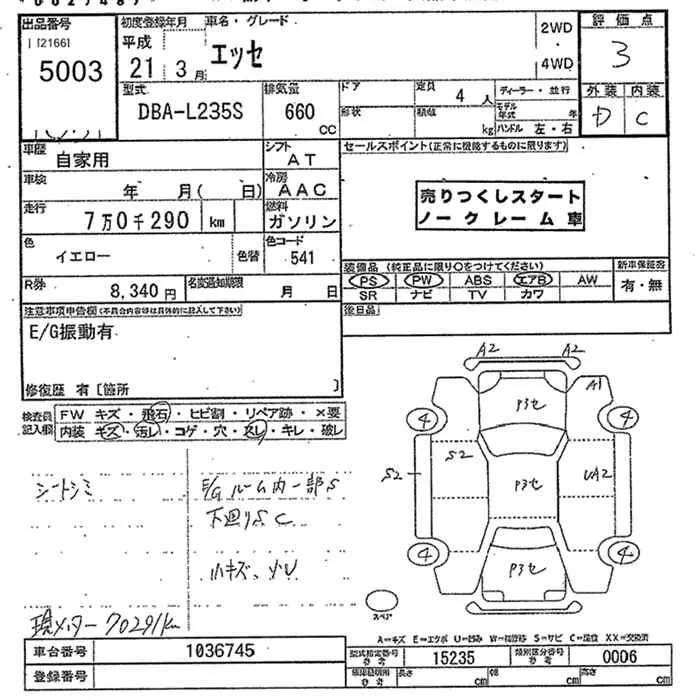 出品番号
5003
初度登録年月
平成
21 3 月
車名・グレード
エッセ
2WD
4WD
評価点
3
外装 内装
D C
型式
DBA-L235S
排気量
660
CC
ドア
形状
定員
4 人
積載
kg
ディーラー・並行
モデル年式 年
ハンドル 左・右
車歴
自家用
シフト
AT
車検
年 月( 日)
冷房
AAC
走行
7万0千290 km
燃料
ガソリン
色
イエロー
色替
色コード
541
R券
8,340 円
名変通知期限
月 日
セールスポイント(正常に機能するものに限ります)
売りつくしスタート
ノークレーム車
装備品 (純正品に限り○をつけてください)
新車保証書
PS PW ABS エアB AW
SR ナビ TV カワ
有・無
後日品
注意事項申告欄(不具合内容等は具体的に記入して下さい)
E/G振動有
修復歴 有[箇所 ]
検査員記入欄
FW キズ・飛石・ヒビ割・リペア跡・×要
内装 キズ・汚レ・コゲ・穴・スレ・キレ・破レ
シートシミ
E/Gルーム内一部S
下廻りS C
小キズ、少U
現メーター70291km
A2 A2
A1
P3セ
4 4
S2
S2
P3セ
UA2
4 4
P3セ
スペア
A=キズ E=エクボ U=凹み W=補修跡 S=サビ C=腐食 XX=交換済
車台番号
1036745
型式指定番号
参考
15235
類別区分番号
参考
0006
登録番号
参考
長さ cm
幅 cm
高さ cm